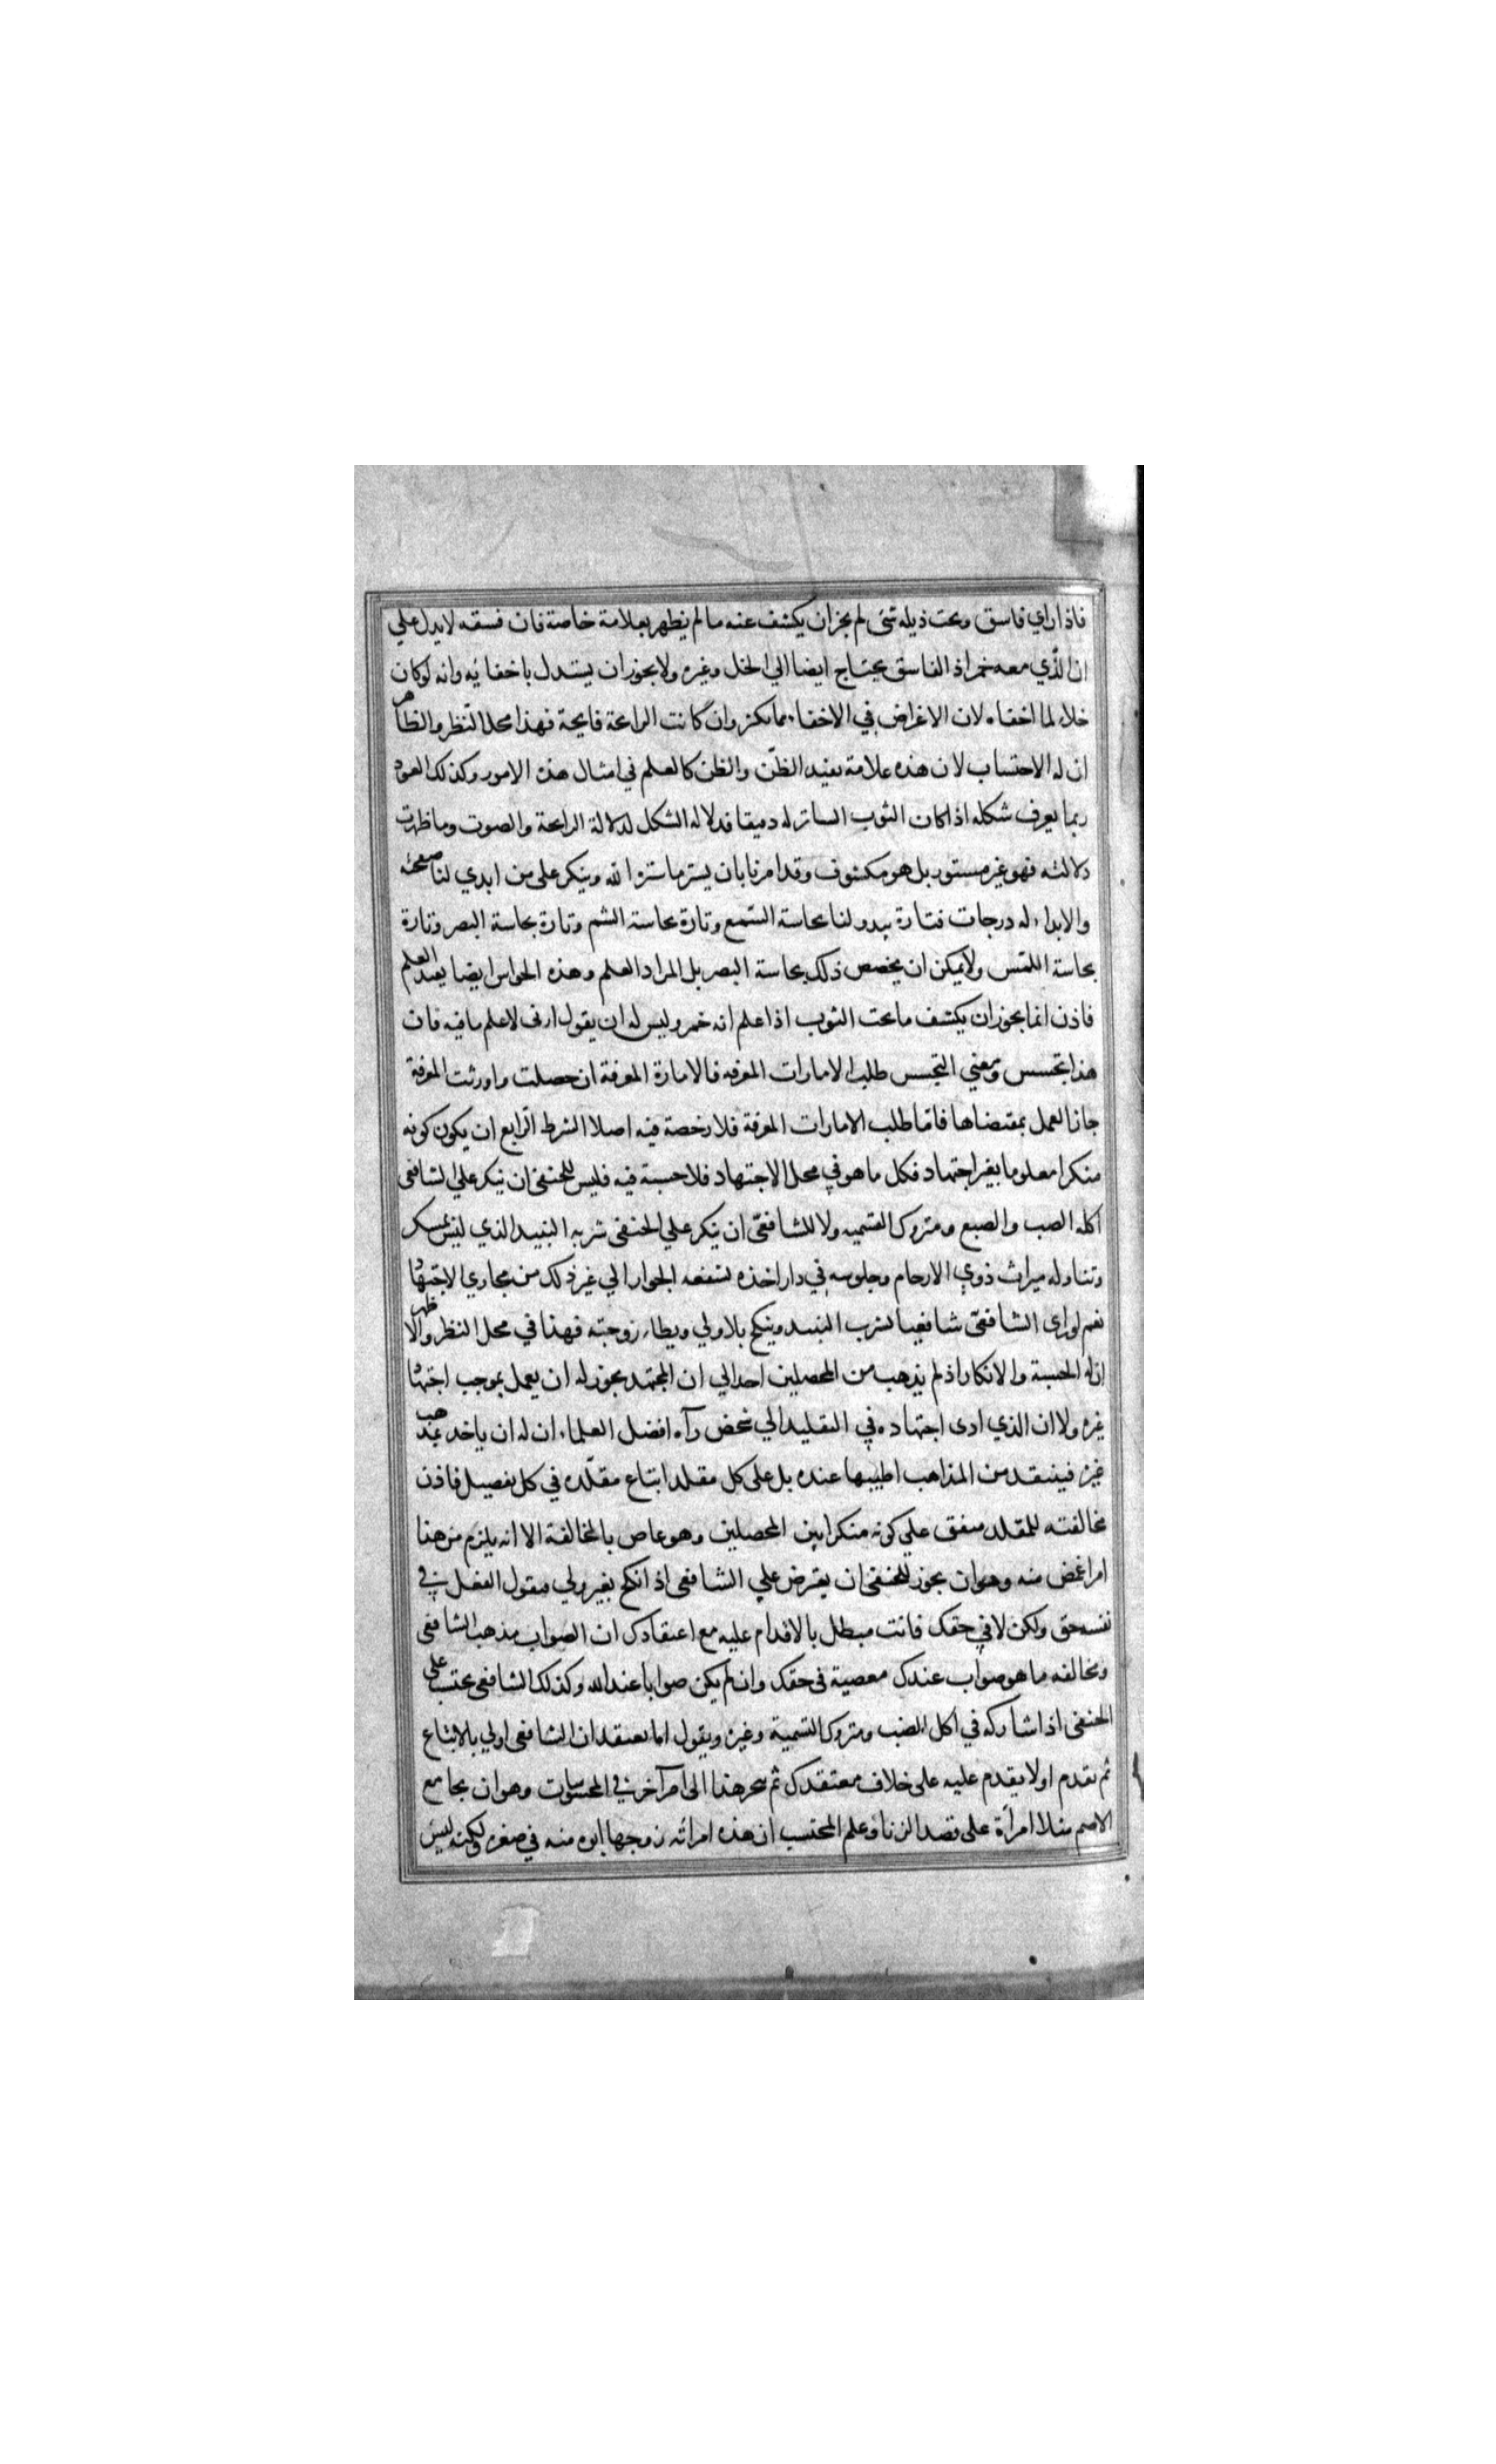 فاذا راي فاسق وتحت ذيله شئ لم يجز ان يكشف عنه ما لم يظهر بعلامة خاصة فان فسقه لا يدل علي
ان الذي معه خمر اذ الفاسق يحتاج ايضا الي الخل وغيره ولا يجوز ان يستدل باخفائه وانه لو كان
خلا لما اخفاه لان الاغراض في الاخفاء مما يكثر وان كانت الرايحة فايحة فهذا محل النظر والظاهر
ان له الاحتساب لان هذه علامة يفيد الظن والظن كالعلم في امثال هذه الامور وكذلك العود
ربما يعرف شكله اذا كان الثوب الساتر له دقيقا فدلاله الشكل كدلالة الرايحة والصوت وما ظهرت
دلالته فهو غير مستور بل هو مكشوف وقد امرنا بان يستر ما ستره الله وينكر على من ابدي لنا صفحته
والابداء له درجات فتارة يبدو لنا بحاسة السمع وتارة بحاسة الشم وتارة بحاسة البصر وتارة
بحاسة اللمس ولا يمكن ان يخصص ذلك بحاسة البصر بل المراد العلم وهذه الحواس ايضا يفيد العلم
فاذن انما يجوز ان يكشف ما تحت الثوب اذا علم انه خمر وليس له ان يقول ارنى لاعلم ما فيه فان
هذا تجسس ومعني التجسس طلب الامارات المعرفه فالامارة المعرفة ان حصلت واورثت المعرفة
جاز العمل بمقتضاها فاما طلب الامارات المعرفة فلا رخصة فيه اصلا الشرط الرابع ان يكون كونه
منكرا معلوما بغير اجتهاد فكل ما هو في محل الاجتهاد فلا حسبة فيه فليس للحنفى ان ينكر علي الشافعى
اكله الضب والضبع ومتروك التسميه ولا للشافعي ان ينكر علي الحنفى شربه النبيذ الذي ليس بمسكر
وتناوله ميراث ذوي الارحام وجلوسه في دار اخذه بشفعه الجوار الي غير ذلك من مجاري الاجتهاد
نعم لو راى الشافعي شافعيا يشرب النبيذ وينكح بلا ولي ويطاء زوجته فهذا في محل النظر والاظهر
ان له الحسبة والانكار اذ لم يذهب من المحصلين احد الي ان المجتهد يجوز له ان يعمل بموجب اجتهاد
غيره ولا ان الذي ادى اجتهاده في التقليد الي شخص رآه افضل العلماء ان له ان ياخذ بمذهب
غيره فينتقد من المذاهب اطيبها عنده بل على كل مقلد اتباع مقلده في كل تفصيل فاذن
مخالفته للمقلد متفق علي كونه منكرا بين المحصلين وهو عاص بالمخالفة الا انه يلزم من هذا
امر اغمض منه وهو ان يجوز للحنفى ان يعترض علي الشافعى اذا نكح بغير ولي فيقول الفعل في
نفسه حق ولكن لا في حقك فانت مبطل بالاقدام عليه مع اعتقادك ان الصواب مذهب الشافعى
ومخالفه ما هو صواب عندك معصية فى حقك وان لم يكن صوابا عند الله وكذلك الشافعى يحتسب على
الحنفى اذا شاركه في اكل الضب ومتروك التسمية وغيره ويقول اما تعتقد ان الشافعى اولي بالاتباع
ثم تقدم او لا يقدم عليه على خلاف معتقدك ثم ينجر هذا الى امر آخر في المحسوسات وهو ان يجامع
الاصم مثلا امرأة على قصد الزنا وعلم المحتسب ان هذه امراته زوجها ابوه منه في صغره ولكنه ليس